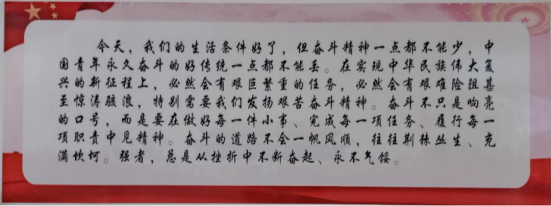 今天，我们的生活条件好了，但奋斗精神一点都不能少，中
国青年永久奋斗的好传统一点都不能丢。在实现中华民族伟大复
兴的新征程上，必然会有艰巨繁重的任务，必然会有艰难险阻甚
至惊涛骇浪，特别需要我们发扬艰苦奋斗精神。奋斗不只是响亮
的口号，而是要在做好每一件小事、完成每一项任务、履行每一
项职责中见精神。奋斗的道路不会一帆风顺，往往荆棘丛生、充
满坎坷。强者，总是从挫折中不断奋起、永不气馁。